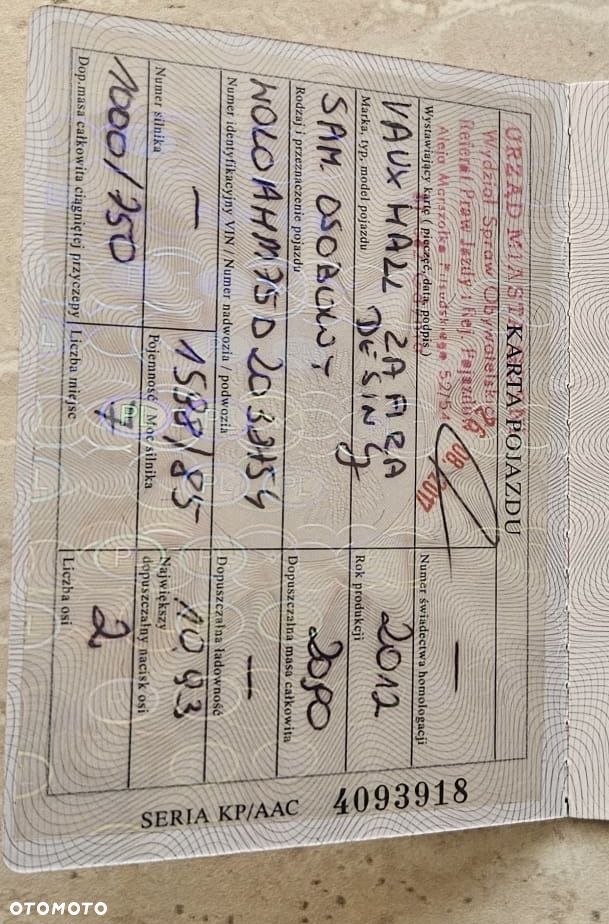 KARTA POJAZDU
URZĄD MIAST
Wydział Spraw Obywatelskich
Referat Praw Jazdy i Rej. Pojazdów
Aleja Marszałka Piłsudskiego 52/54
08. 2017
Wystawiający kartę (pieczęć, data, podpis.)
Numer świadectwa homologacji
—
VAUXHALL ZAFIRA
DESING
Marka, typ, model pojazdu
2012
Rok produkcji
SAM. OSOBOWY
Rodzaj i przeznaczenie pojazdu
2090
Dopuszczalna masa całkowita
Numer identyfikacyjny VIN / Numer nadwozia / podwozia
—
Dopuszczalna ładowność
—
Numer silnika
1598/85
Pojemność / Moc silnika
10,93
Największy
dopuszczalny nacisk osi
1000/750
Dop.masa całkowita ciągniętej przyczepy
7
Liczba miejsc
2
Liczba osi
SERIA KP/AAC 4093918
OTOMOTO